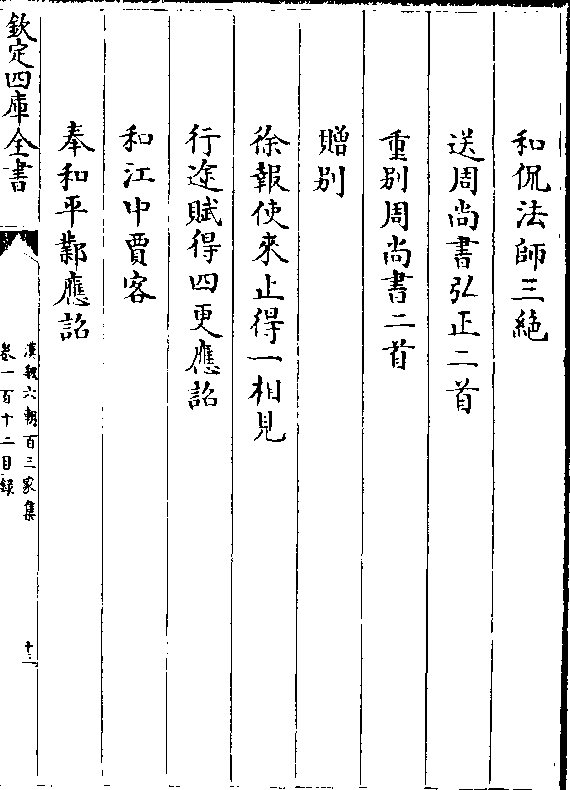 和侃法師三絶
送周尚書弘正二首
重别周尚書二首
贈别
徐報使來止得一相見
行途賦得四更應詔
和江中賈客
奉和平鄴應詔
欽定四庫全書
漢魏六朝百三家集
卷一百十二目録
十二